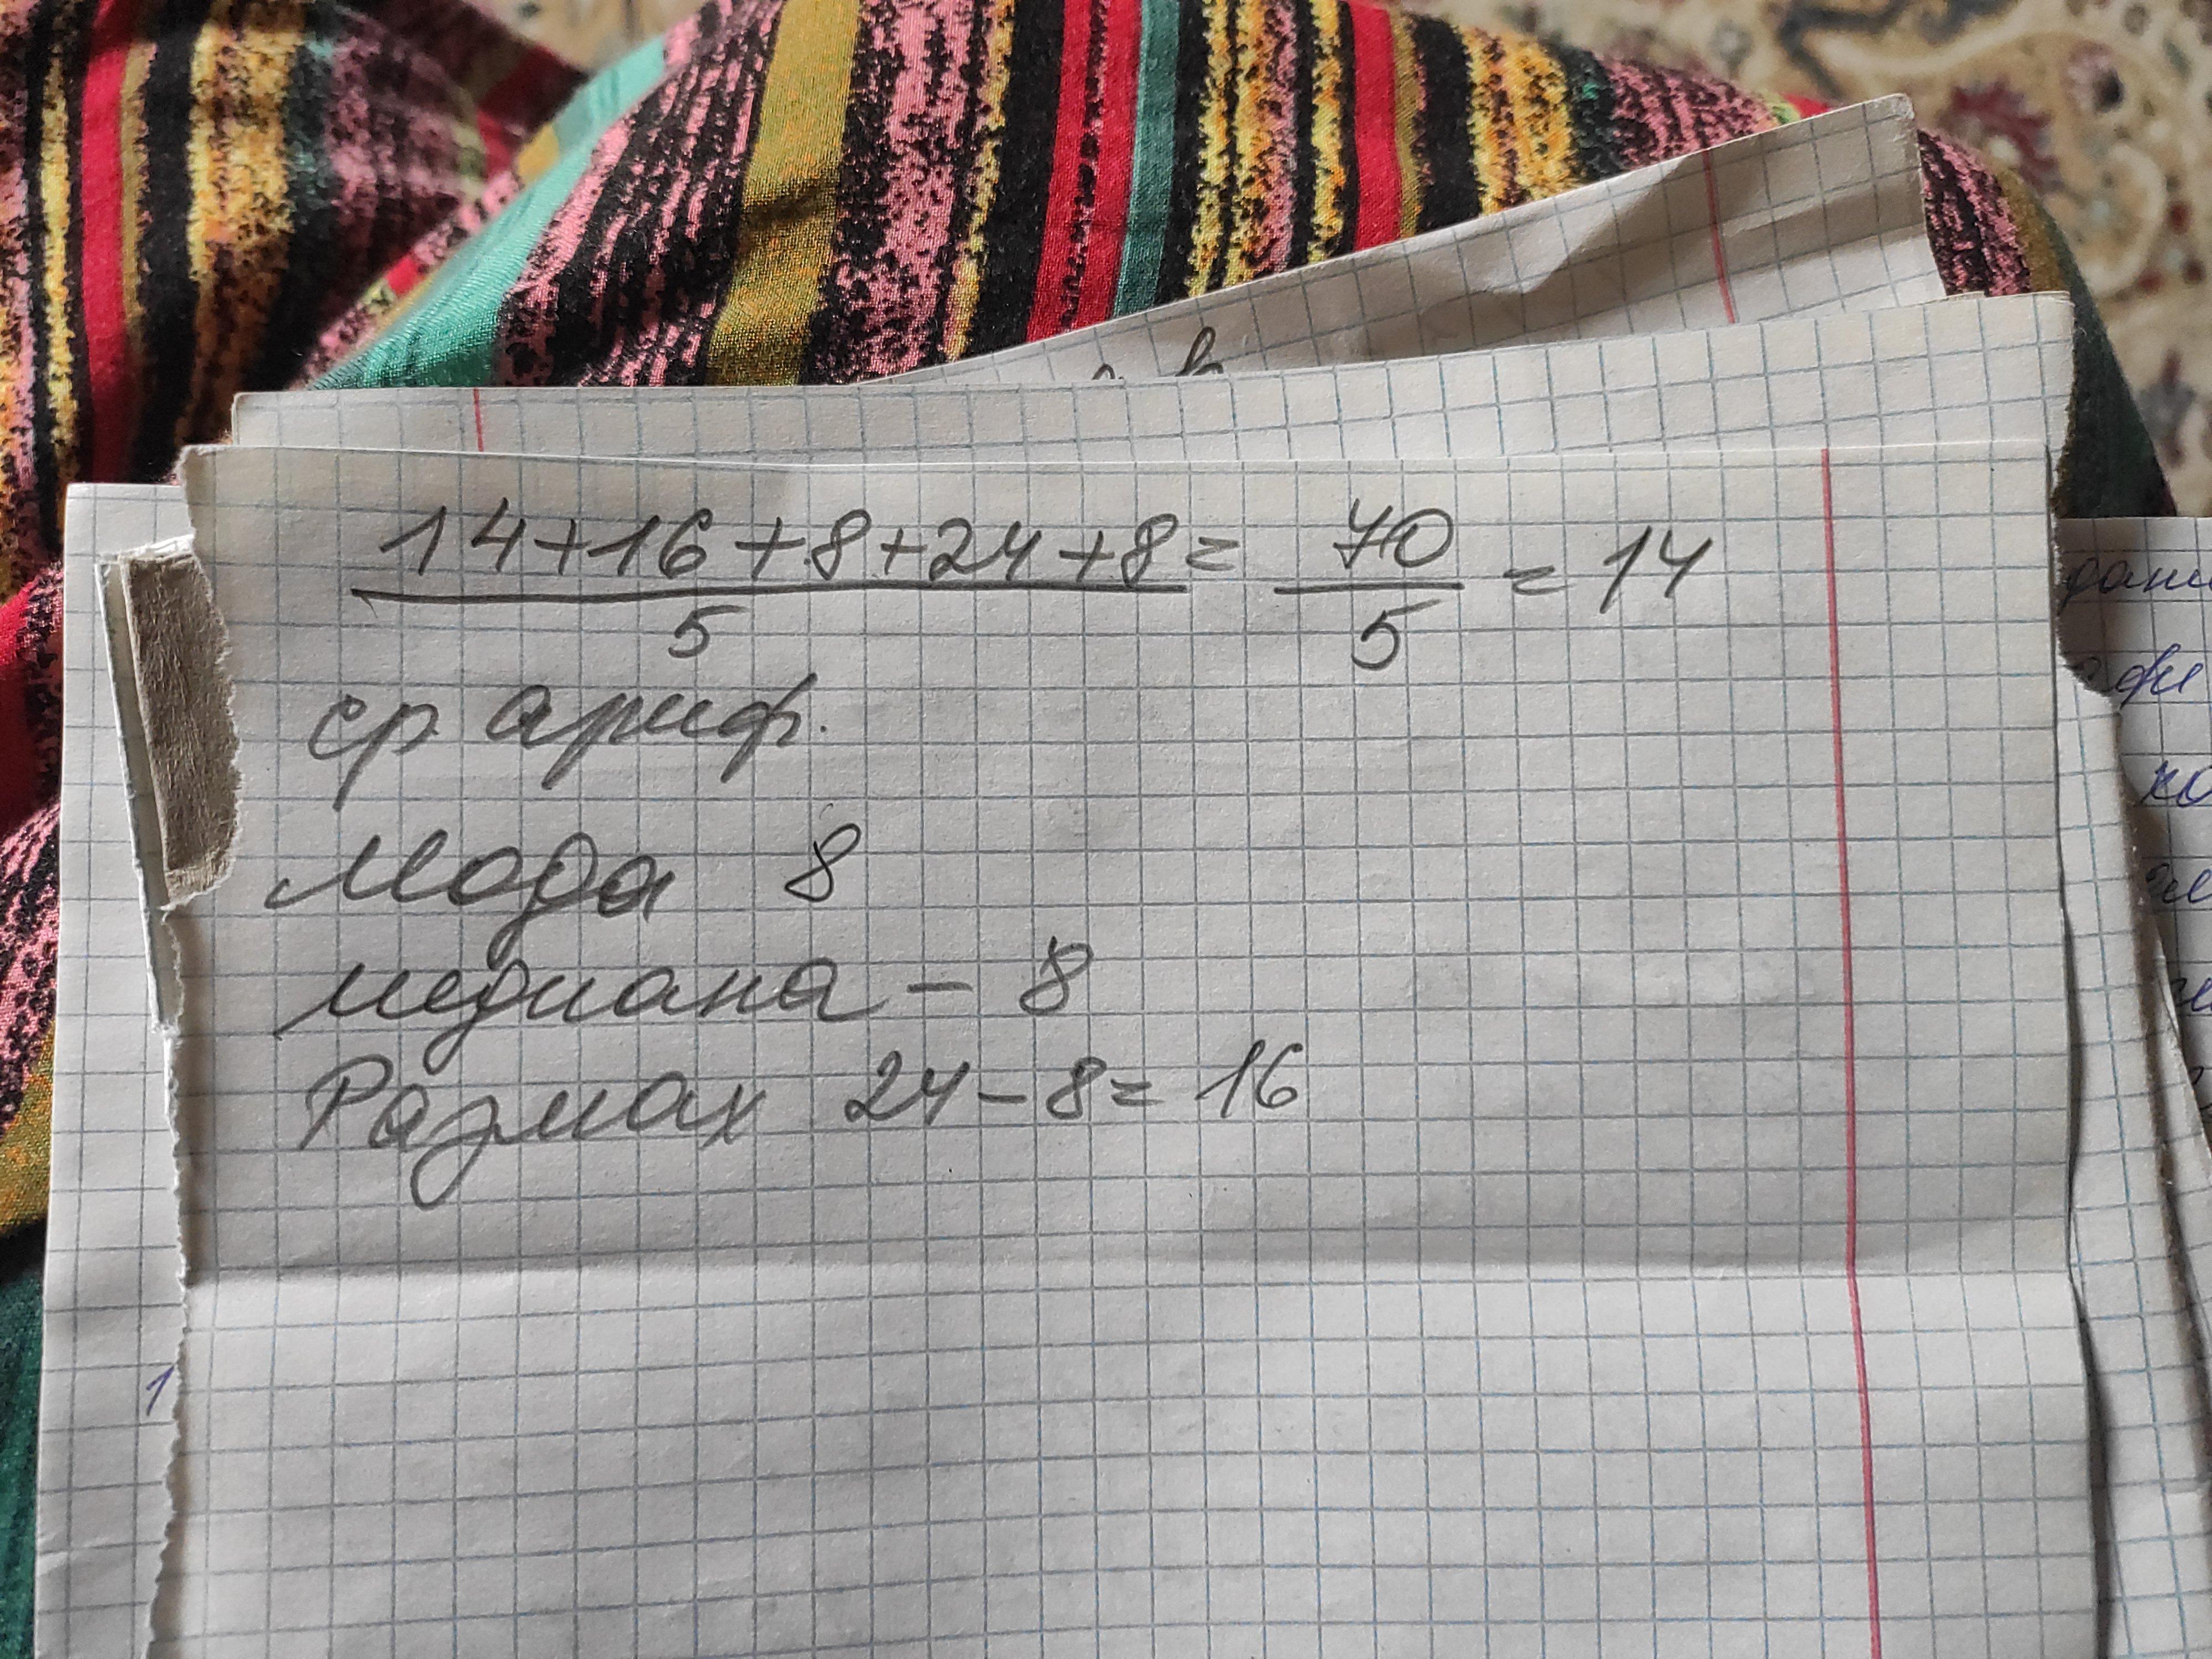 14+16+8+24+8= 70 = 14
5 5
ср ариф.
мода 8
медиана – 8
Размах 24–8= 16
1